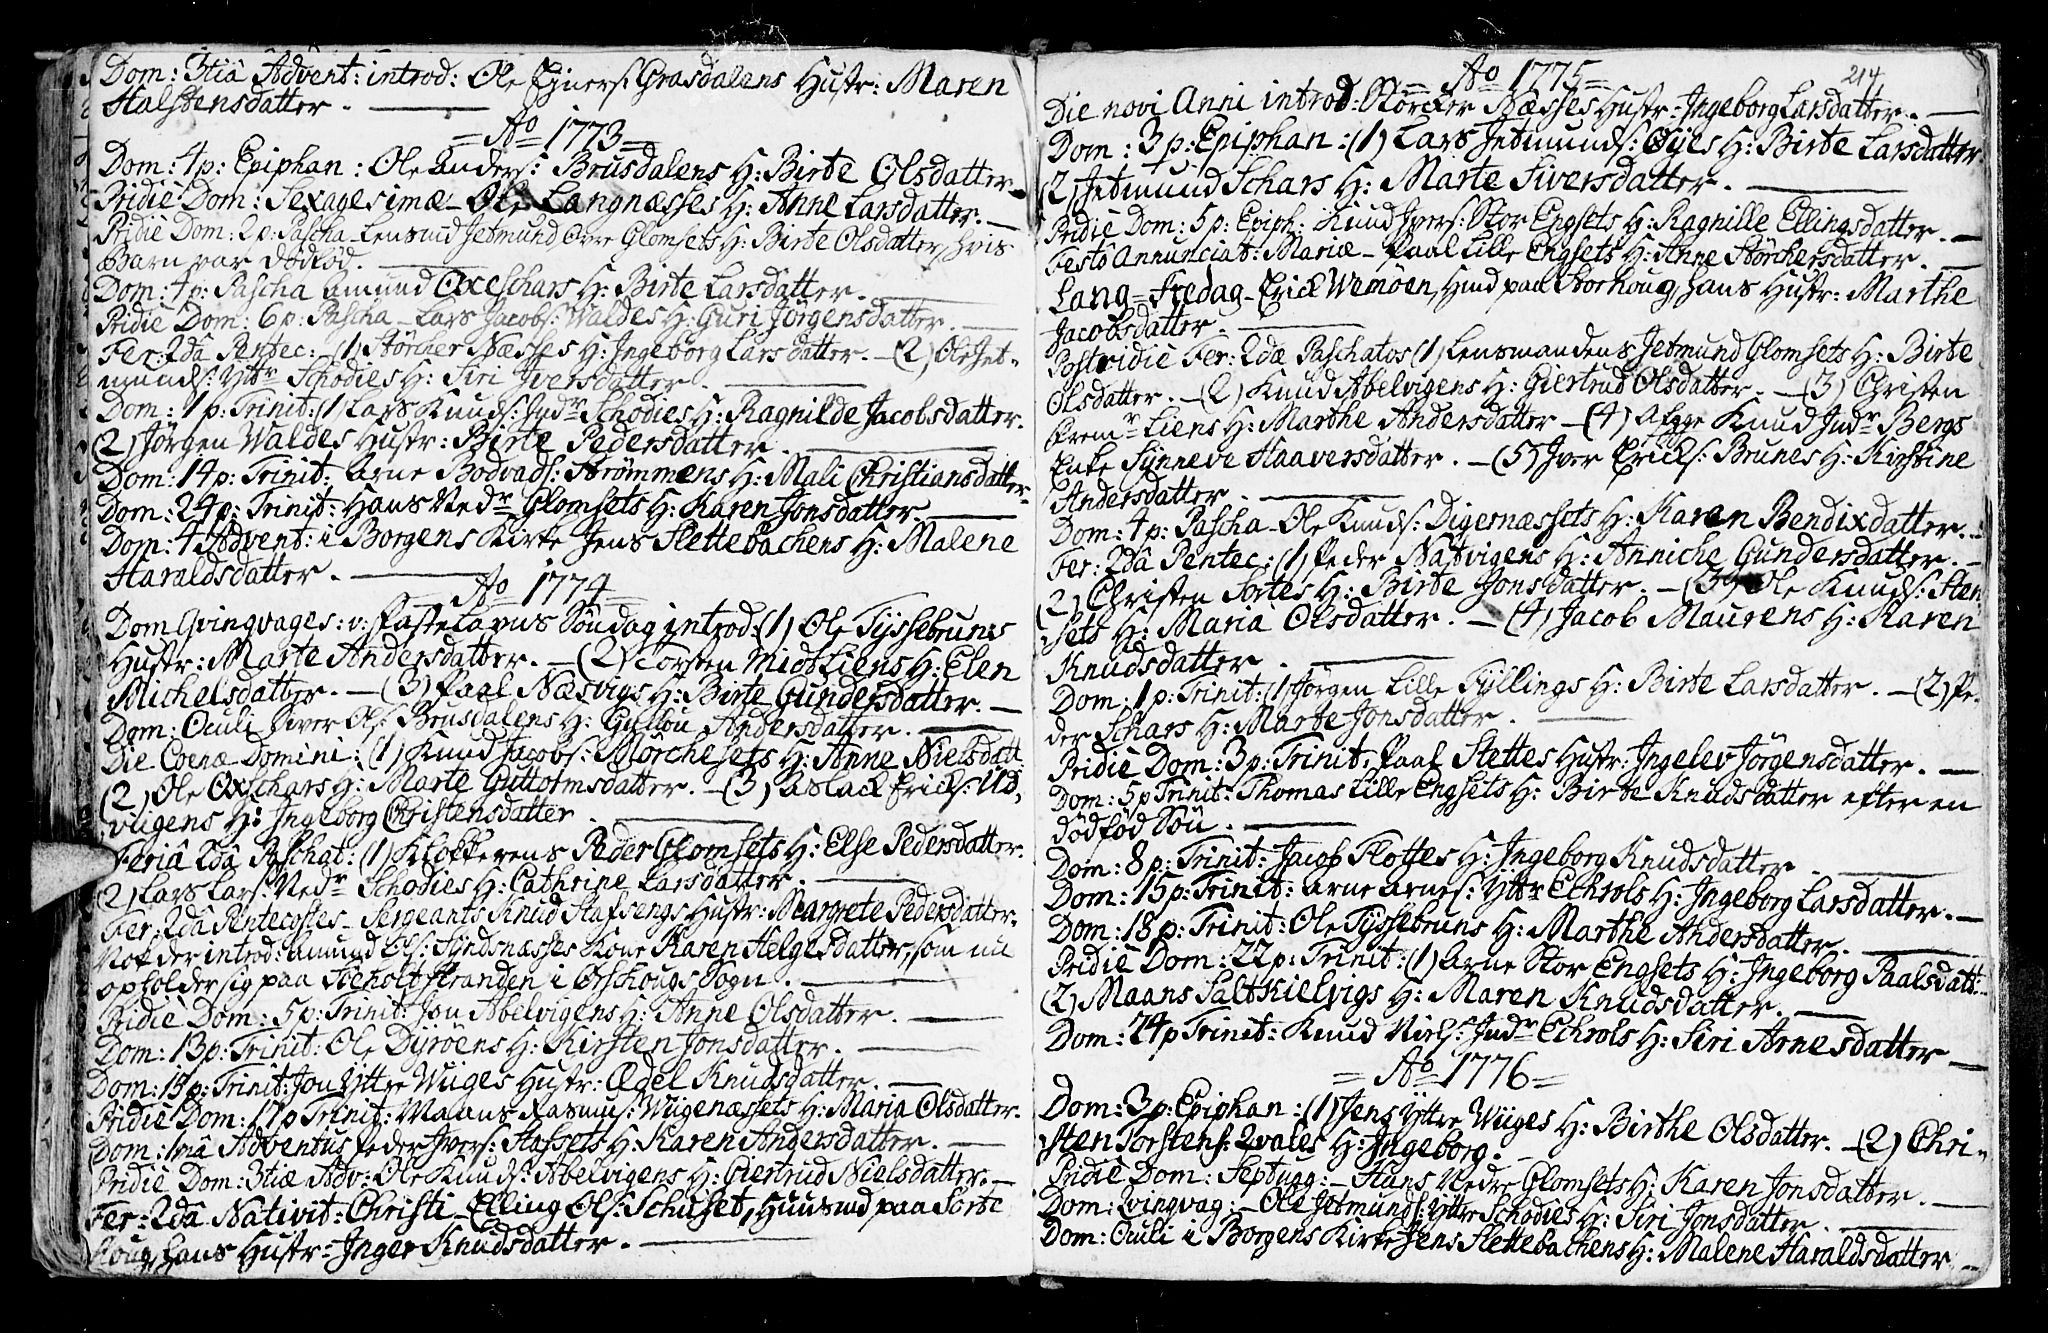 Dom: 3tiâ Advent: introd: Ole Ejners: Grasdalens Hustr: Maren
Halstensdatter.
= Ao 1773 =
Dom: 4 p: Epiphan: Ole Anders: Brusdalens H: Birte Olsdatter
Pridie Dom: Sexagesimæ – Ole Langnæsses H: Anne Larsdatter. –
Pridie Dom: 2 p: Pascha – Lensmd Jetmund Ovre Glomsets H: Birte Olsdatter, hvis
Barn var dödföd.
Dom: 4 p: Pascha Amund Oxeschars H: Birte Larsdatter.
Pridie Dom: 6 p: Pascha – Lars Jacobs: Waldes H: Guri Jörgensdatter. –
Fer: 2dâ Pentec: (1) Störcher Næsses H: Ingeborg Larsdatter. – (2) Ole Jet-
munds: Yttr Schodies H: Siri Iversdatter.
Dom: 1 p: Trinit: (1) Lars Knuds: Indr Schodies H: Ragnilde Jacobsdatter.
(2) Jörgen Waldes Hustr: Birte Pedersdatter.
Dom: 14 p: Trinit: Arne Bodvads: Strömmens H: Mali Christiansdatter.
Dom: 24 p: Trinit: Hans Nedr Glomsets H: Karen Jonsdatter.
Dom: 4 Advent: i Borgens Kirke Jens Slettebachens H: Malene
Haraldsdatter.
Ao 1774
Dom Qvingvages: v: Fastelavns Söndag introd: (1) Ole Tyssebruns
Hustr: Marte Andersdatter. – (2) Torsten Midtliens H: Elen
Michelsdatter. – (3) Paal Næsvigs H: Birte Gundersdatter. –
Dom: Oculi Iver Ols: Brusdalens H: Gullou Andersdatter.
Die Coenæ Domini: (1) Knud Jacobs: Morchesets H: Anne Nielsdatt:
(2) Ole Oxschars H: Marte Guttormsdatter. – (3) Aslack Ericks: Ud,
viigens H: Ingeborg Christensdatter.
Feriâ 2dâ Paschat: (1) Klokkerens Peder Glomsets H: Else Pedersdatter.
(2) Lars Lars: Nedr Schodies H: Cathrine Larsdatter.
Fer: 2dâ Pentecostes – Sergeants Knud Stafsengs Hustr: Margrete Pedersdatter.
Not der introd: Amund Ols: Syndsnæsses Kone Karen Helgesdatter, som nu
opholder sig paa Soeholtstranden i Örschougs Sogn.
Pridie Dom: 5 p: Trinit: Jon Abelvigens H: Anne Olsdatter.
Dom: 13 p: Trinit: Ole Dyröens H: Kirsten Jonsdatter.
Dom: 15 p: Trinit: Jon Yttre Wiiges Hustr: Ædel Knudsdatter.
Pridie Dom: 17 p Trinit: Maans Rasmus: Wiigenæssets H: Maria Olsdatter.
Dom: 1mâ Adventus Peder Ivers: Stafsets H: Karen Andersdatter.
Pridie Dom: 3tiæ Adv: Ole Knuds: Abelvigens H: Giertrud Nielsdatter. –
Fer: 2dâ Nativit: Christi – Elling Ols: Schuset, Huusmd paa Sorte
houg hans Hustr: Inger Knudsdatter.
214
= Ao 1775 =
Die novi Anni introd: Störcker Næsses Hustr: Ingeborg Larsdatter.
Dom: 3 p: Epiphan: (1) Lars Jetmunds: Öyes H: Birte Larsdatter
(2) Jetmund Schars H: Marte Siversdatter.
Pridie Dom: 5 p: Epiph: Knud Ivers: Stor Engsets H: Ragnille Ellingsdatter. –
Festo Annunciat: Mariæ – Paal Lille Engsets H: Anne Störchersdatter.
Lang-Fredag – Erick Wemöen, Hmd paa Storhoug, hans Hustr: Marthe
Jacobsdatter.
Postridie Fer: 2dæ Paschatos (1) Lensmandens Jetmund Glomsets H: Birte
Olsdatter. – (2) Knud Abelvigens H: Giertrud Olsdatter. – (3) Christen
Fremr Liens H: Marthe Andersdatter – (4) Afgge Knud Indr Bergs
Enke Synneve Haaversdatter. – (5) Iver Ericks: Brunes H: Kirstine
Andersdatter.
Dom: 4 p: Pascha – Ole Knuds: Digernæssets H: Karen Bendixdatter.
Fer: 2dâ Pentec: (1) Peder Natvigens H: Anniche Gundersdatter.
(2) Christen Sortes H: Birte Jonsdatter. – (3) Ole Knuds: Sten,
sets H: Maria Olsdatter. – (4) Jacob Maurens H: Karen
Knudsdatter.
Dom: 1 p: Trinit: (1) Jörgen Lille Tyllings H: Birte Larsdatter. – (2) Pe-
der Schars H: Marte Jonsdatter.
Pridie Dom: 3 p: Trinit: Paal Slettes Hustr: Ingelev Jörgensdatter. –
Dom: 5 p Trinit: Thomas Lille Engsets H: Birte Knudsdatter efter en
dödföd Sön.
Dom: 8 p: Trinit: Jacob Flottes H: Ingeborg Knudsdatter
Dom: 15 p: Trinit: Arne Arnes: Yttr Echrols H: Ingeborg Larsdatter. –
Dom: 18 p: Trinit: Ole Tyssebruns H: Marthe Andersdatter.
Pridie Dom: 22 p: Trinit: (1) Arne Stor Engsets H: Ingeborg Paalsdatt:
(2) Maans Saltkielvigs H: Maren Knudsdatter.
Dom: 24 p Trinit: Knud Niels: Indr Echrols H: Siri Arnesdatter –
= Ao 1776 =
Dom: 3 p: Epiphan: (1) Jens Yttre Wiiges H: Birthe Olsdatter. – (2) Chri-
sten Torstens: Qvales H: Ingeborg:
Pridie Dom: Septuag: – Hans Nedre Glomsets H: Karen Jonsdatter.
Dom: Qvingvag: – Ole Jetmunds: Yttre Schodies H: Siri Jonsdatter.
Dom: Oculi i Borgens Kirke Jens Slettebachens H: Malene Haraldsdatter –